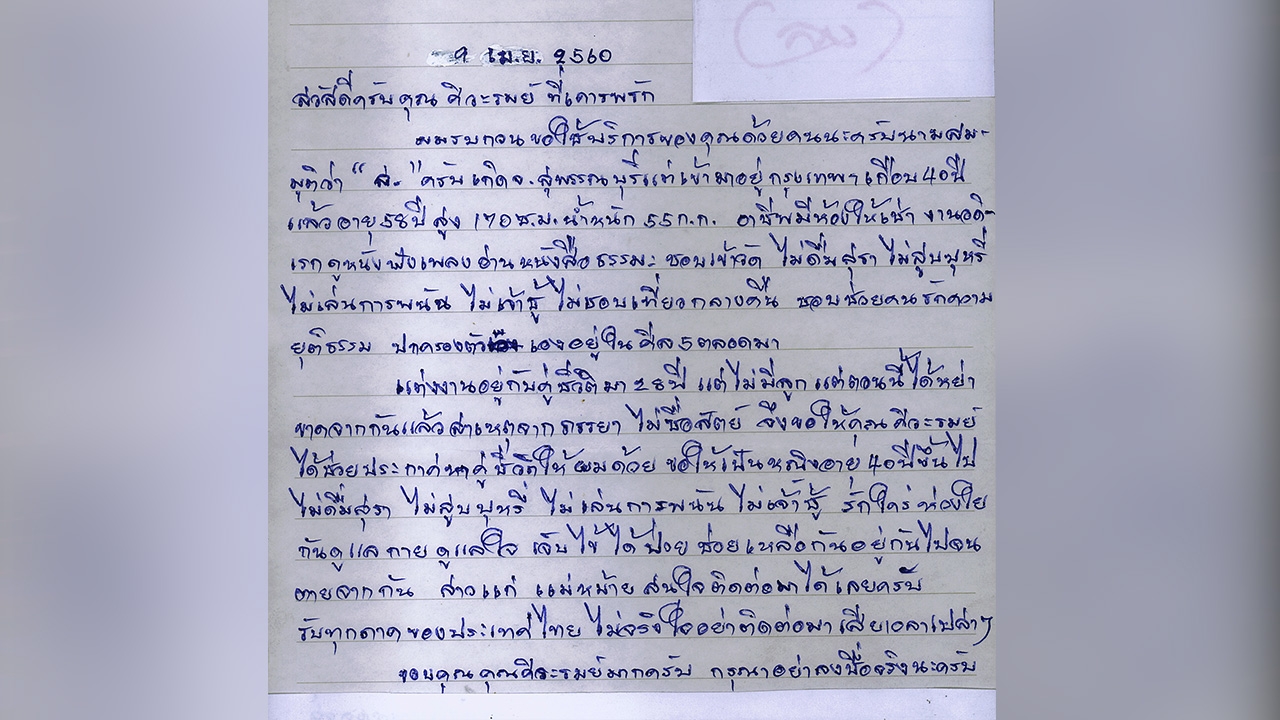 (สม)
9 เม.ย. 2560
สวัสดีครับคุณ ศิวะรมย์ ที่เคารพรัก
ผมรบกวนขอใช้บริการของคุณด้วยคนนะครับนามสม-
มุติว่า “ ส. ” ครับ เกิด จ. สุพรรณบุรีแต่เข้ามาอยู่ กรุงเทพฯ เกือบ 40 ปี
แล้ว อายุ 58 ปี สูง 170 ซ.ม. น้ำหนัก 55 ก.ก. อาชีพมีห้องให้เช่า งานอดิ-
เรก ดูหนัง ฟังเพลง อ่านหนังสือธรรมะ ชอบเข้าวัด ไม่ดื่มสุรา ไม่สูบบุหรี่
ไม่เล่นการพนัน ไม่เจ้าชู้ ไม่ชอบเที่ยวกลางคืน ชอบช่วยคน รักความ
ยุติธรรม ปกครองตัวเองอยู่ในศีล 5 ตลอดมา
แต่งงานอยู่กับคู่ชีวิตมา 28 ปี แต่ไม่มีลูก แต่ตอนนี้ได้หย่า
ขาดจากกันแล้วสาเหตุจากภรรยา ไม่ซื่อสัตย์ จึงขอให้คุณ ศิวะรมย์
ได้ช่วยประกาศหาคู่ชีวิตให้ผมด้วย ขอให้เป็นหญิงอายุ 40 ปีขึ้นไป
ไม่ดื่มสุรา ไม่สูบบุหรี่ ไม่เล่นการพนัน ไม่เจ้าชู้ รักใคร่ห่วงใย
กันดูแลกาย ดูแลใจ เจ็บไข้ได้ป่วย ช่วยเหลือกันอยู่กันไปจน
ตายจากกัน สาวแก่ แม่หม้าย สนใจติดต่อมาได้เลยครับ
รับทุกภาคของประเทศไทย ไม่จริงใจอย่าติดต่อมา เสียเวลาเปล่าๆ
ขอบคุณ คุณศิวะรมย์มากครับ กรุณาอย่าลงชื่อจริงนะครับ